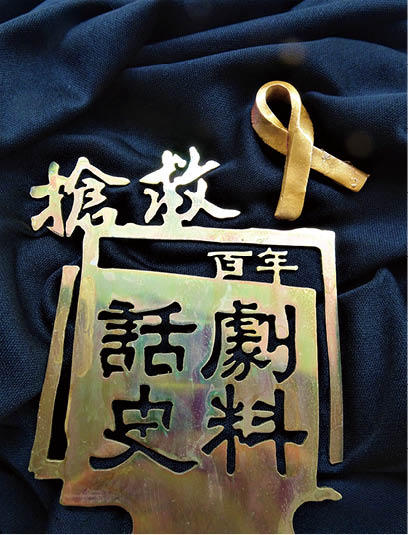 搶救
百年
話劇
史料